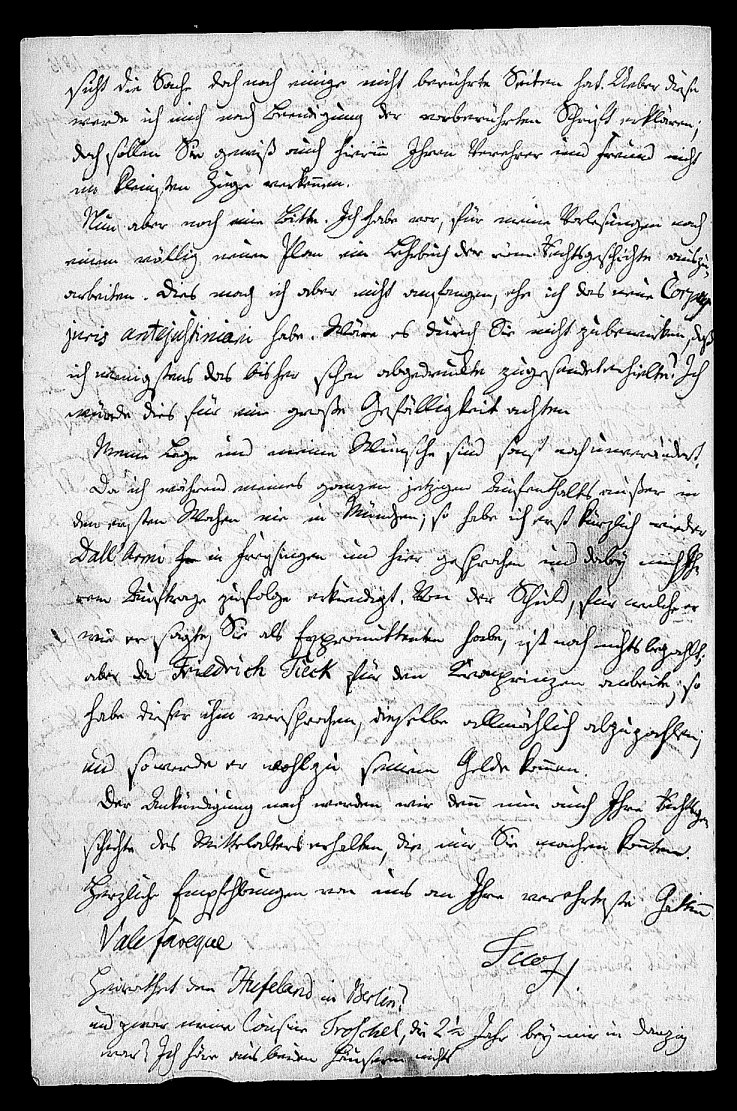 sicht die Sache doch noch einige nicht berührte Seiten hat. Ueber diese
werde ich mich nach Beendigung der vorberührten Schrift erklären;
doch sollen Sie gewiß auch hierin Ihren Verehrer und Freund nicht
im kleinsten Zuge verkennen.
Nun aber noch eine Bitte. Ich habe vor, für meine Vorlesungen nach
einem völlig neuen Plan ein Lehrbuch der röm. Rechtsgeschichte auszu-
arbeiten. Dies mag ich aber nicht anfangen, ehe ich das neue Corpus
juris antejustiniani habe. Wäre es durch Sie nicht zu bewirken, daß
ich wenigstens das bisher schon abgedruckte zugesendet erhielte? Ich
würde dies für eine große Gefälligkeit achten.
Meine Lage und meine Wünsche sind sonst noch unverändert.
Da ich während meines ganzen jetzigen Aufenthalts außer in
den ersten Wochen nie in München, so habe ich erst kürzlich wieder
Dall'Armi in Freysingen und hier gesprochen und dabey mich Ih-
rem Auftrage zufolge erkundigt. Von der Schuld, für welche er
wie er sagte, Sie als Expromittenten habe, ist noch nichts bezahlt;
aber da Friedrich Tieck für den Kronprinzen arbeite, so
habe dieser ihm versprochen, dieselbe allmählich abzuzahlen;
und so werde er wohl zu seinem Gelde kommen.
Der Ankündigung nach werden wir denn nun auch Ihre Rechtsge-
schichte des Mittelalters erhalten, die nur Sie machen konnten.
Herzliche Empfehlungen von uns an Ihre verehrteste Gattin
Vale faveque
Tuo H.
Heirathet denn Hufeland in Berlin?
und zwar meine Cousine Troschel, die 2½ Jahr bey mir in Danzig
war? Ich höre aus beiden Häusern nichts